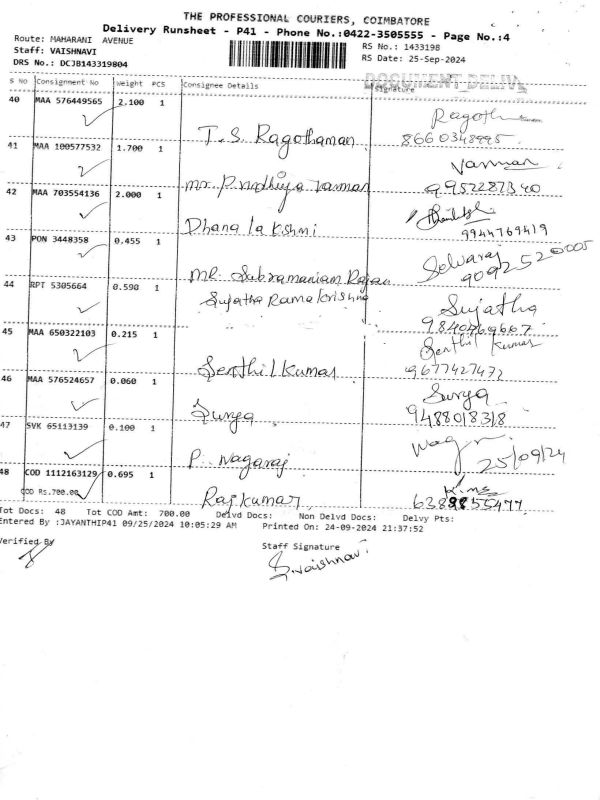 THE PROFESSIONAL COURIERS, COIMBATORE
Delivery Runsheet - P41 - Phone No.:0422-3505555 - Page No.:4
Route: MAHARANI AVENUE
RS No.: 1433198
Staff: VAISHNAVI
RS Date: 25-Sep-2024
DRS No.: DCJB143319804
DOCUMENT DELIV
S No Consignment No Weight PCS Consignee Details Signature
40 MAA 576449565 2.100 1
T.S. Ragothaman 8660348995
41 MAA 100577532 1.700 1 Varman
Mr. P. Varman 9952287340
42 MAA 703554136 2.000 1
Dhana lakshmi 9944769419
43 PON 3448358 0.455 1 Selvaraj
MR. Subramaniam Rajan 9092520005
44 RPT 5305664 0.590 1
Sujatha Rama krishna Sujatha
9840769667
45 MAA 650322103 0.215 1 Senthil Kumar
Senthil Kumar 9677427472
46 MAA 576524657 0.060 1 Surya
Surya 9488018318
47 SVK 65113139 0.100 1
P. Nagaraj 25/09/24
48 COD 1112163129 0.695 1
COD Rs.700.00 Rajkumar 6389855477
Tot Docs: 48 Tot COD Amt: 700.00 Delvd Docs: Non Delvd Docs: Delvy Pts:
Entered By :JAYANTHIP41 09/25/2024 10:05:29 AM Printed On: 24-09-2024 21:37:52
Verified By Staff Signature
S. Vaishnavi